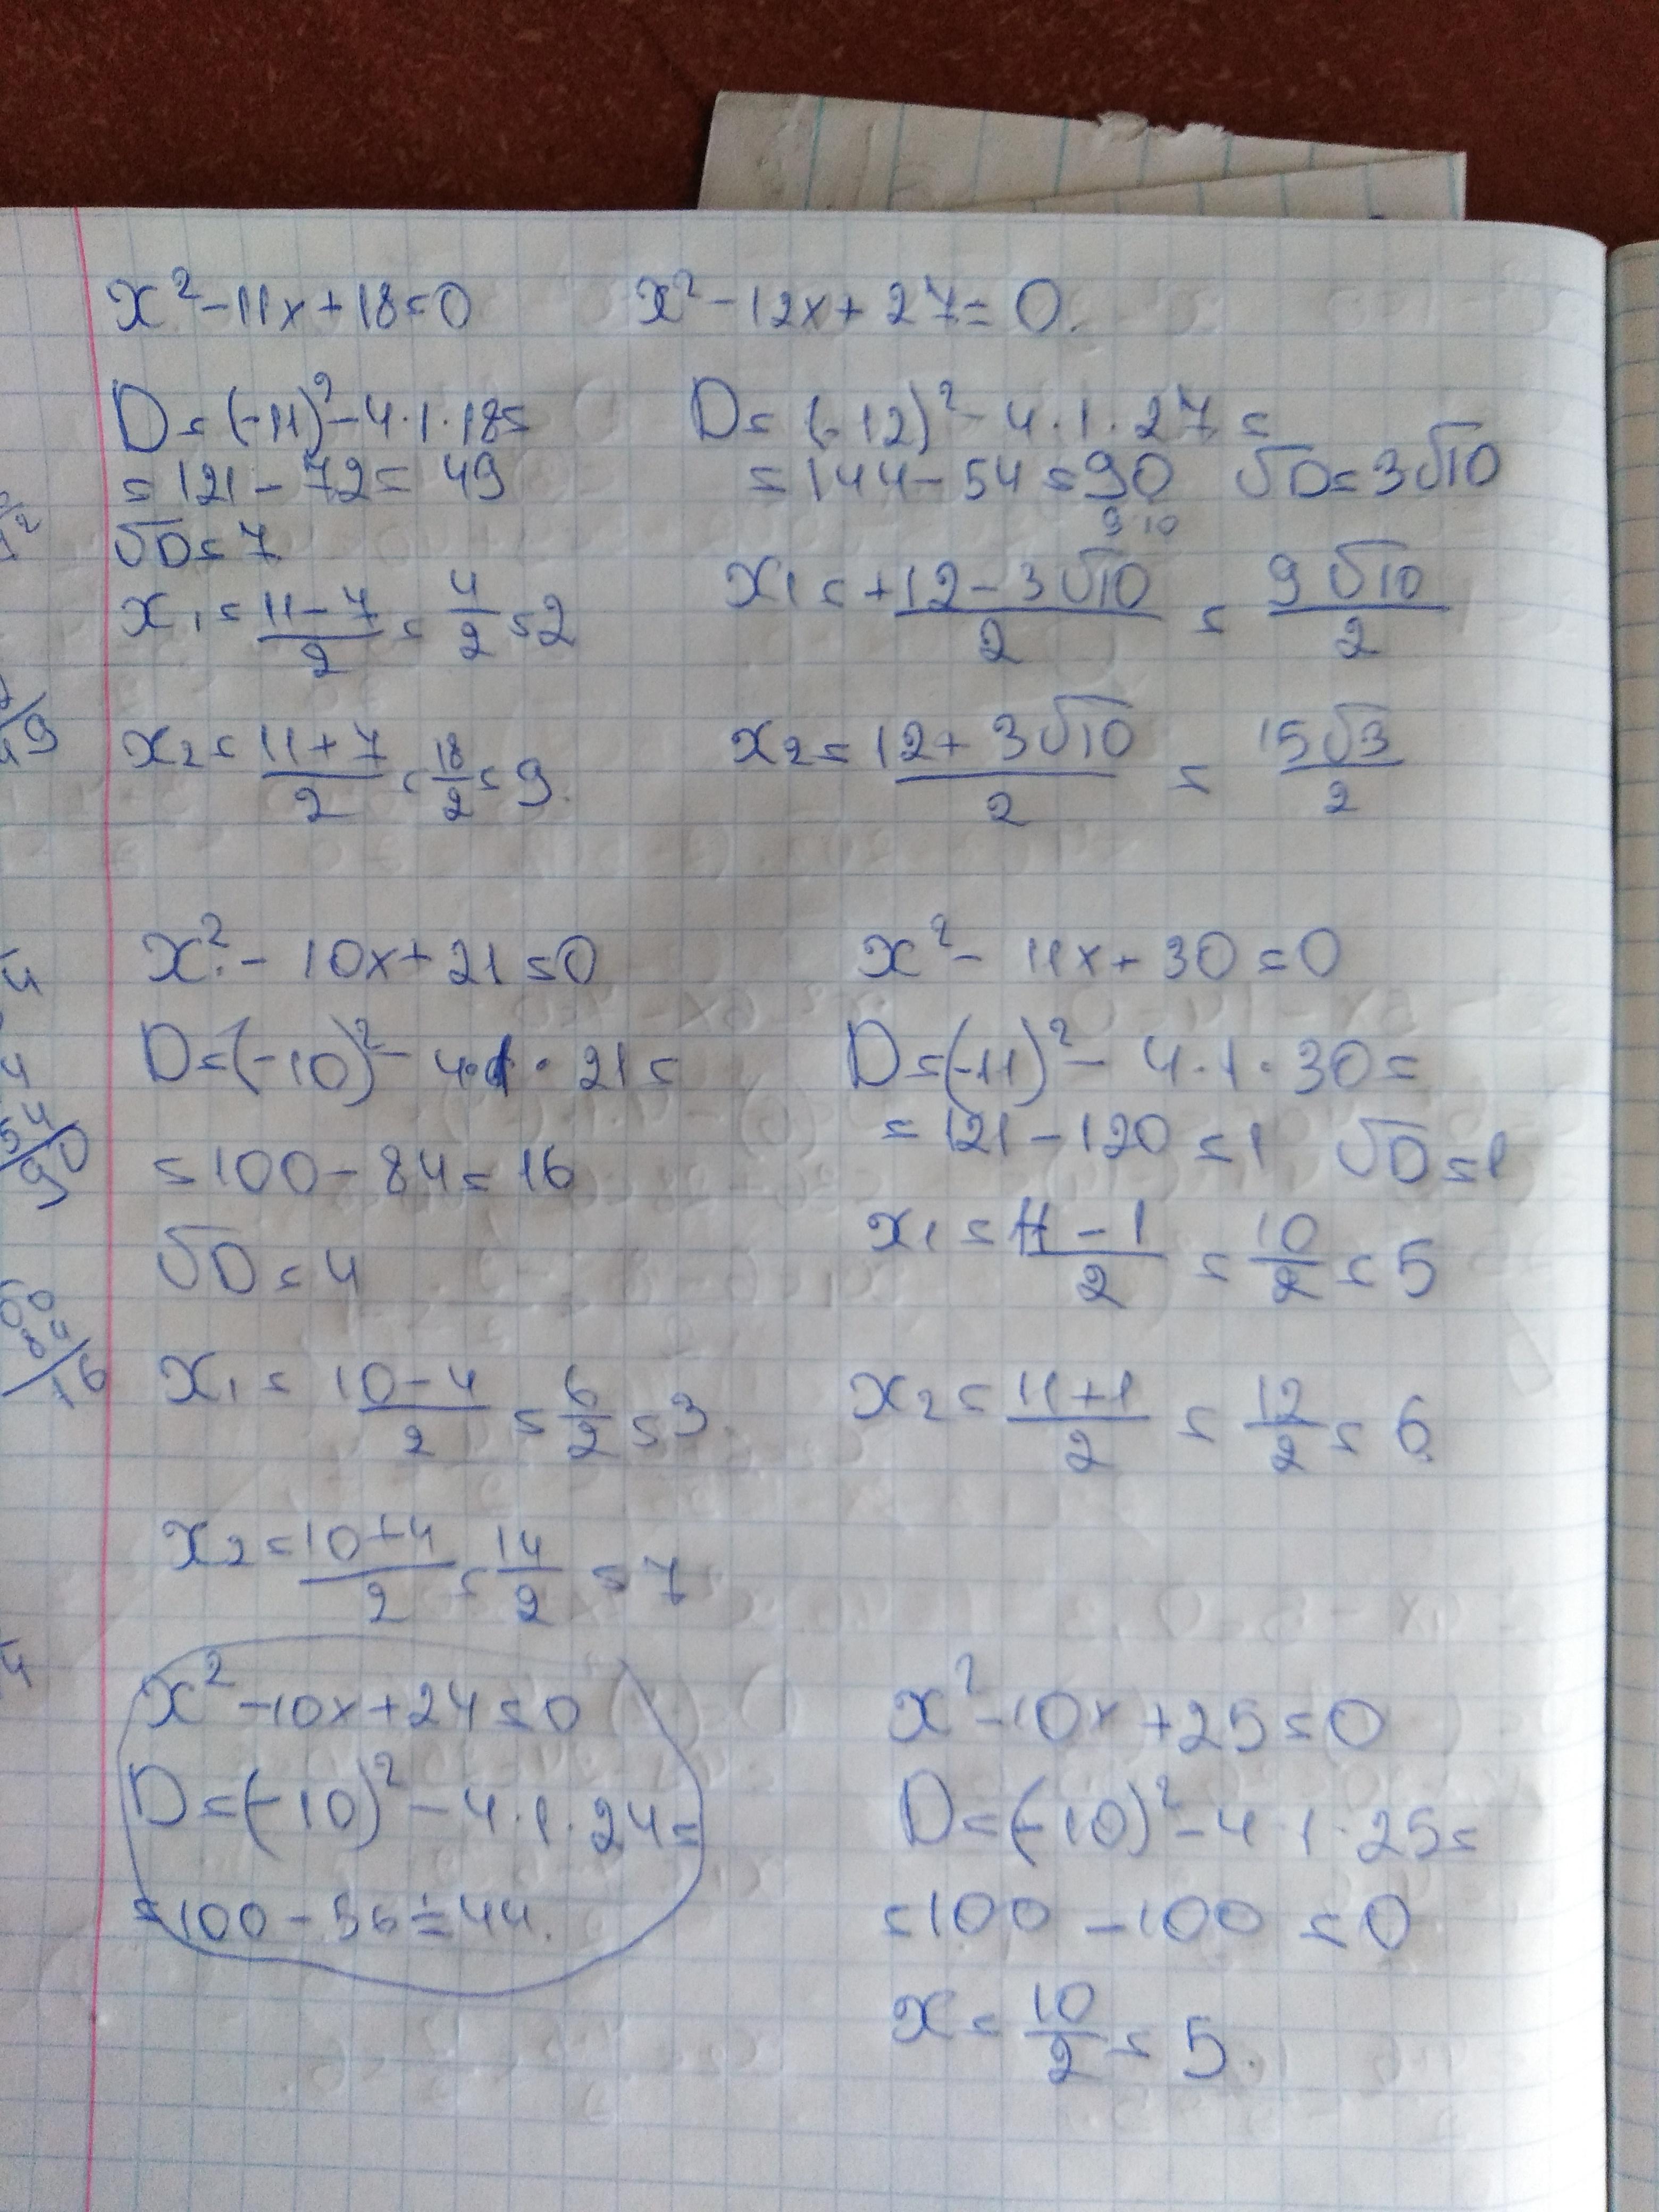 x² - 11x + 18 = 0
D = (-11)² - 4·1·18 =
= 121 - 72 = 49
√D = 7
x₁ = (11 - 7)/2 = 4/2 = 2
x₂ = (11 + 7)/2 = 18/2 = 9.
x² - 12x + 27 = 0.
D = (-12)² - 4·1·27 =
= 144 - 54 = 90 √D = 3√10
9 10
x₁ = +(12 - 3√10)/2 = 9√10/2
x₂ = (12 + 3√10)/2 = 15√3/2
x² - 10x + 21 = 0
D = (-10)² - 4·1·21 =
= 100 - 84 = 16
√D = 4
x₁ = (10 - 4)/2 = 6/2 = 3.
x₂ = (10 + 4)/2 = 14/2 = 7
x² - 11x + 30 = 0
D = (-11)² - 4·1·30 =
= 121 - 120 = 1 √D = 1
x₁ = (11 - 1)/2 = 10/2 = 5
x₂ = (11 + 1)/2 = 12/2 = 6.
x² - 10x + 24 = 0
D = (-10)² - 4·1·24 =
= 100 - 56 = 44.
x² - 10x + 25 = 0
D = (-10)² - 4·1·25 =
= 100 - 100 = 0
x = 10/2 = 5.
49
4
4
54
90
84
16
4